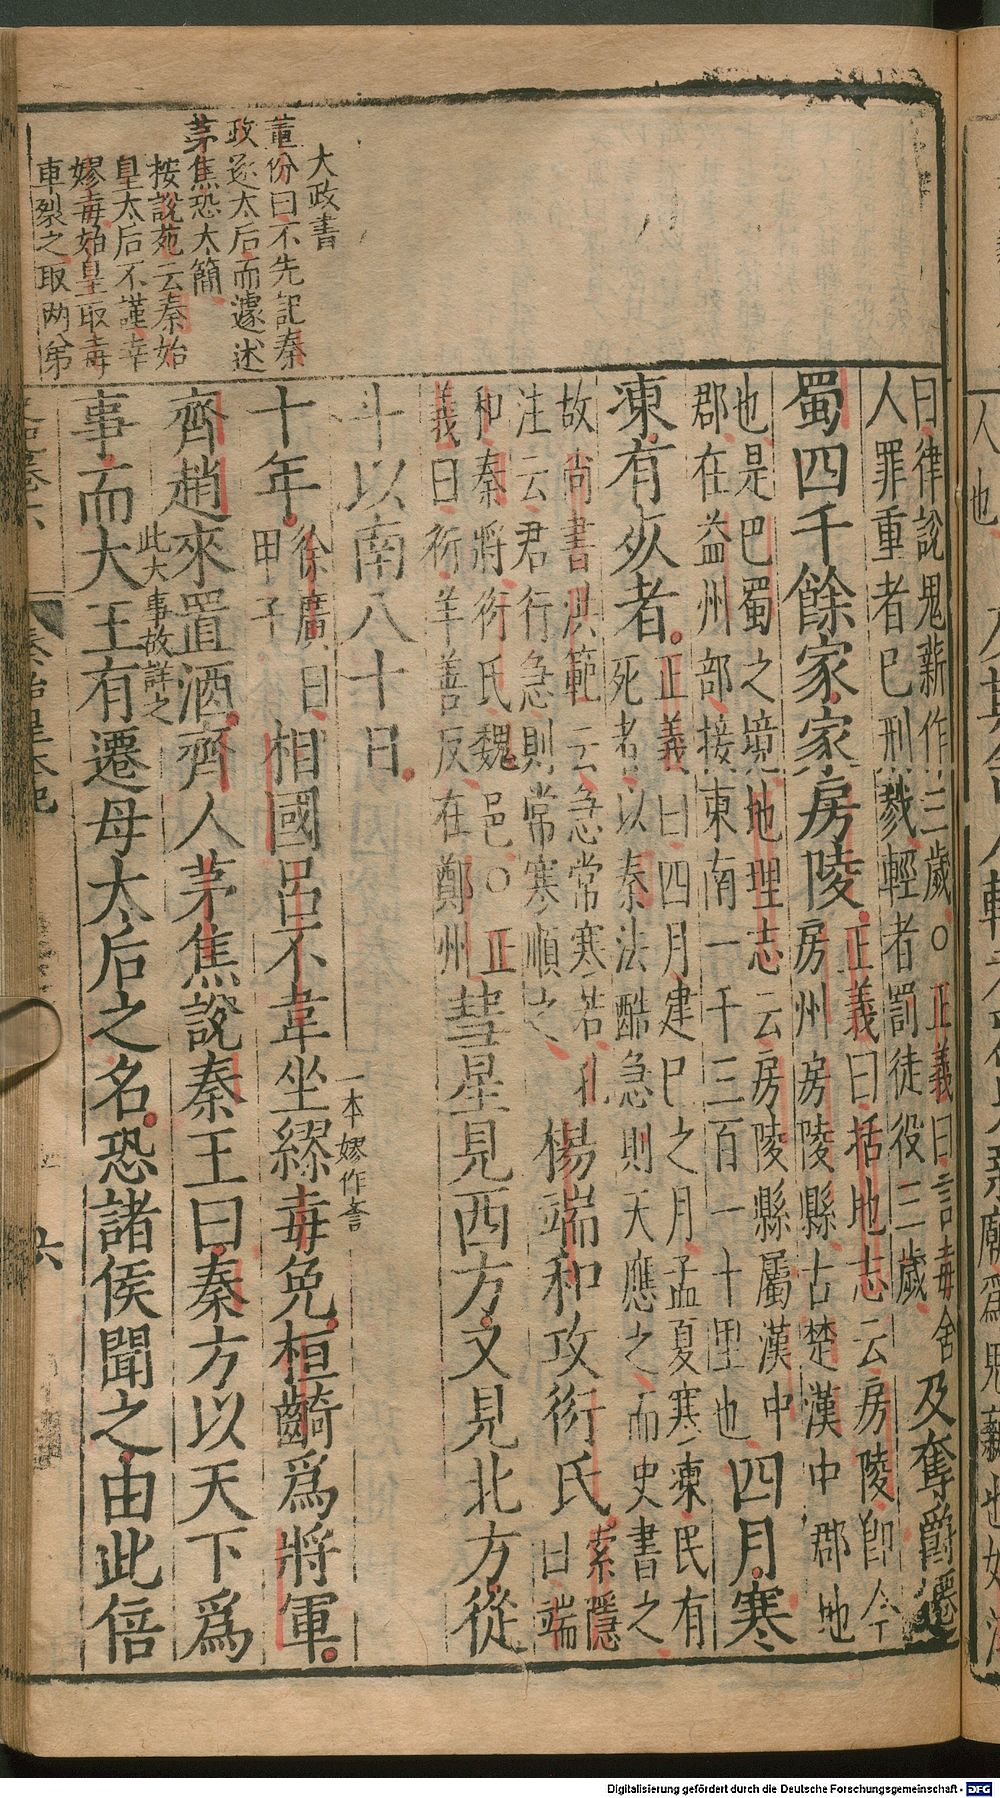 人也
大政書
董份曰不先記秦
政遂太后而遽述
茅焦恐太簡
按說苑云秦始
皇太后不謹幸
嫪毐始皇取毐
車裂之取两弟
曰律說鬼薪作三歲○正義曰言毐舍
人罪重者已刑戮輕者罰徒役三歲
及奪爵遷
蜀四千餘家家房陵
正義曰括地志云房陵即今
房州房陵縣古楚漢中郡地
也是巴蜀之境地理志云房陵縣屬漢中
郡在益州部接東南一千三百一十里也
四月寒
凍有死者
正義曰四月建巳之月孟夏寒凍民有
死者以秦法酷急則天應之而史書之
故尚書洪範云急常寒若孔
注云君行急則常寒順之
楊端和攻衍氏
索隱
曰端
和秦將衍氏魏邑○正
義曰衍羊善反在鄭州
彗星見西方又見北方從
斗以南八十日
十年
徐廣曰
甲子
相國呂不韋坐嫪毐免桓齮爲將軍
一本嫪作
齊趙來置酒齊人茅焦說秦王曰秦方以天下爲
此大事故詳之
事而大王有遷母太后之名恐諸侯聞之由此倍
秦始皇本紀
六
Digitalisierung gefördert durch die Deutsche Forschungsgemeinschaft - DFG